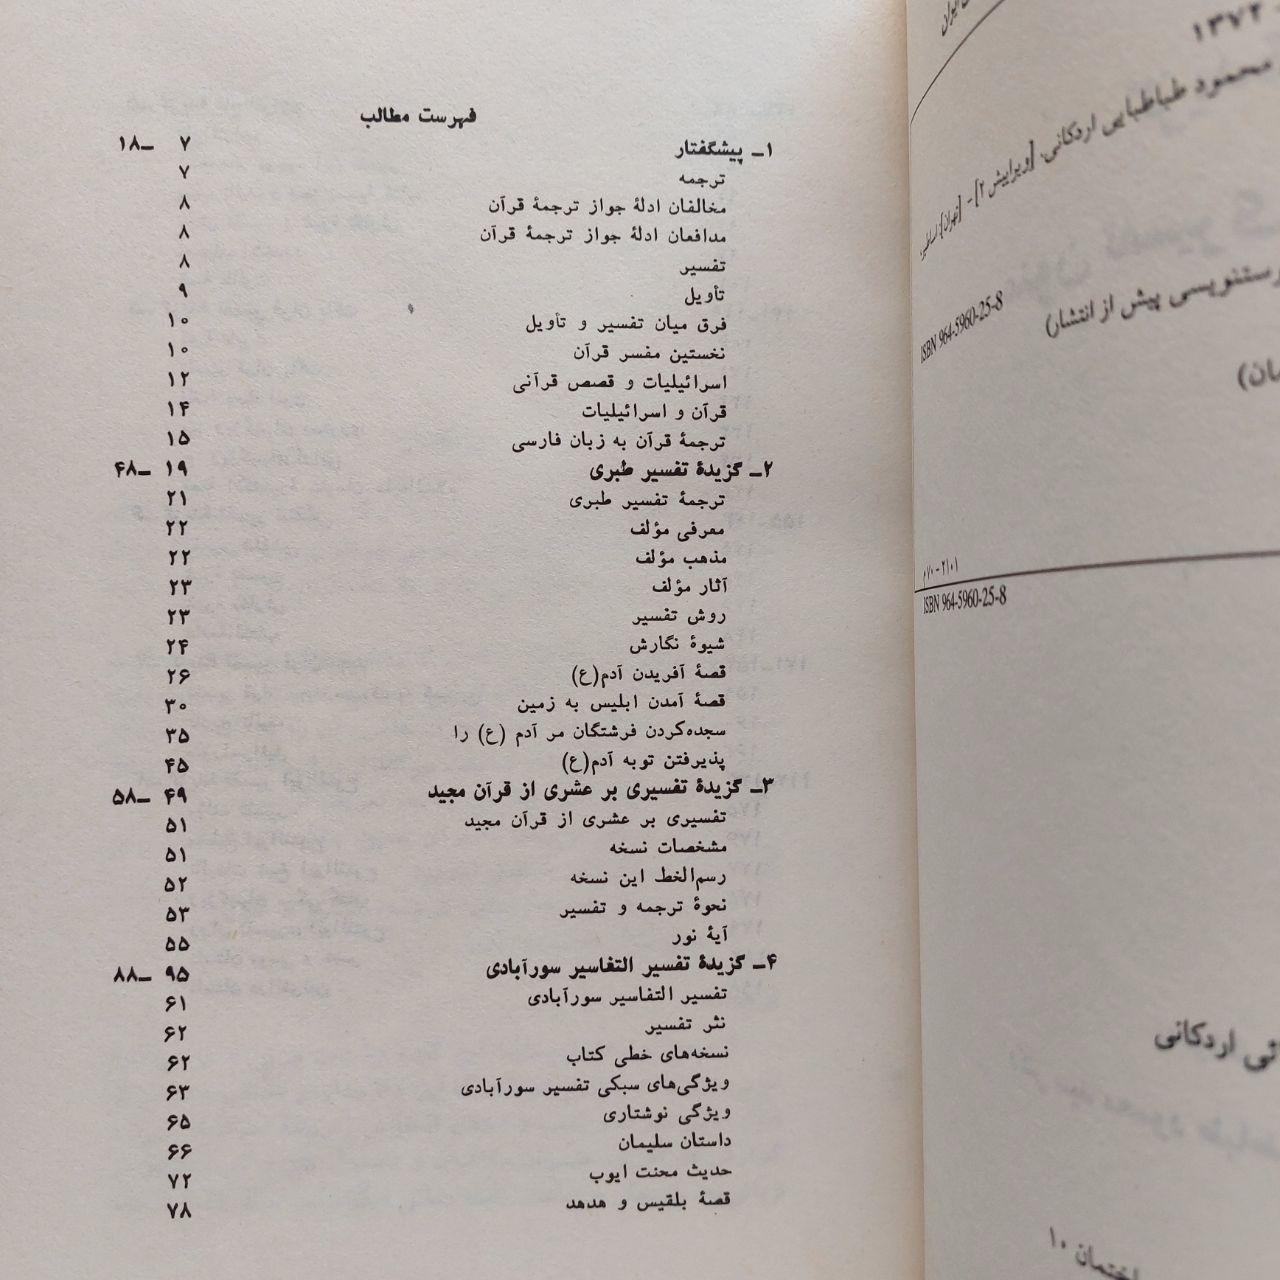 ایران
۱۳۷۲
محمود طباطبایی اردکانی. [ویرایش ۲] - [تهران]: اساطیر،
ISBN 964-5960-25-8
پیش از انتشار)
۲۱۰۱ - ۷۰م
ISBN 964-5960-25-8
ئی اردکانی
۱۰
فهرست مطالب
۱ـ پیشگفتار ۷ ــ۱۸
ترجمه ۷
مخالفان ادلهٔ جواز ترجمهٔ قرآن ۸
مدافعان ادلهٔ جواز ترجمهٔ قرآن ۸
تفسیر ۸
تأویل ۹
فرق میان تفسیر و تأویل ۱۰
نخستین مفسر قرآن ۱۰
اسرائیلیات و قصص قرآنی ۱۲
قرآن و اسرائیلیات ۱۴
ترجمهٔ قرآن به زبان فارسی ۱۵
۲ـ گزیدهٔ تفسیر طبری ۱۹ ــ۴۸
ترجمهٔ تفسیر طبری ۲۱
معرفی مؤلف ۲۲
مذهب مؤلف ۲۲
آثار مؤلف ۲۳
روش تفسیر ۲۳
شیوهٔ نگارش ۲۴
قصهٔ آفریدن آدم(ع) ۲۶
قصهٔ آمدن ابلیس به زمین ۳۰
سجده‌کردن فرشتگان مر آدم (ع) را ۳۵
پذیرفتن توبه آدم(ع) ۴۵
۳ـ گزیدهٔ تفسیری بر عشری از قرآن مجید ۴۹ ــ۵۸
تفسیری بر عشری از قرآن مجید ۵۱
مشخصات نسخه ۵۱
رسم‌الخط این نسخه ۵۲
نحوهٔ ترجمه و تفسیر ۵۳
آیهٔ نور ۵۵
۴ـ گزیدهٔ تفسیر التفاسیر سورآبادی ۹۵ ــ۸۸
تفسیر التفاسیر سورآبادی ۶۱
نثر تفسیر ۶۲
نسخه‌های خطی کتاب ۶۲
ویژگی‌های سبکی تفسیر سورآبادی ۶۳
ویژگی نوشتاری ۶۵
داستان سلیمان ۶۶
حدیث محنت ایوب ۷۲
قصهٔ بلقیس و هدهد ۷۸